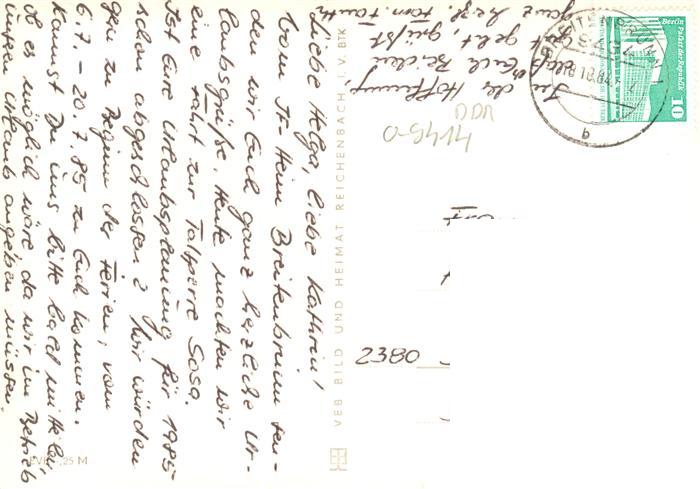 Liebe Helga, liebe Kathrin!
Vom FT-Heim Breitenbrunn sen-
den wir Euch ganz herzliche Ur-
laubsgrüße. Heute machten wir
eine Fahrt zur Talsperre Sosa.
Ist Eure Urlaubsplanung für 1985
schon abgeschlossen? Wir würden
gern zu Beginn der Ferien, vom
6.7. – 20.7.85 zu Euch kommen.
Kannst Du uns bitte bald mitteilen
ob es möglich wäre, da wir im Betrieb
unseren Urlaub angeben müssen.
In der Hoffnung,
daß es Euch Beiden
gut geht, grüßt
ganz herzl. Fam.
VEB BILD UND HEIMAT REICHENBACH I. V. BTK
EVP -,25 M
BREITENBRUNN
9437
18.10.84
b
Berlin
Palast der Republik
10
2380